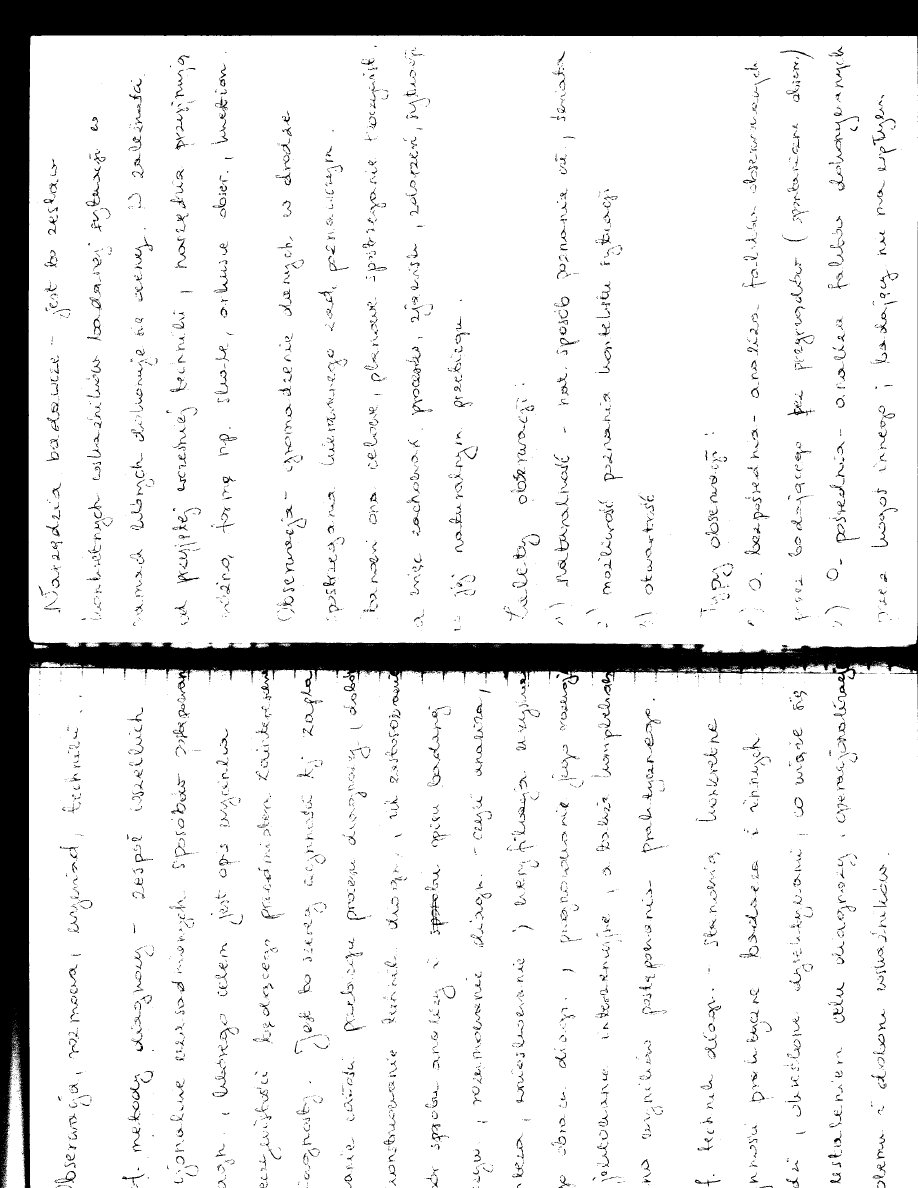 Obserwacja, rozmowa, wywiad, techniki.
f. metody diagnozy - zespół wszelkich
jonalnie uzasadnionych sposobów
, którego celem jest opis wyjaśnia
eczywistości będącego przedmiotem zainteresowa
iagnosty. Jest to szereg czynności tj zapla
anie całości przebiegu procesu diagnozy, dobór
onstruowanie technik diagn., ich zastosowanie
sposobu analizy i opisu badanej
, rozumowanie diagn. - czyli analiza,
nteza, wnioskowanie) weryfikacja uzyska
go obrazu diagn., prognozowanie jego rozwoju
jektowanie interwencyjne, a także kompleksow
na wyników postępowania praktycznego.
f. technik diagn. - stanowią konkretne
ynności praktyczne badacza i innych
dzi, określone dyrektywami, co wiąże się
ustaleniem celu diagnozy, operacjonalizacją
blemu i doboru wskaźników.
Narzędzia badawcze - jest to zestaw
konkretnych wskaźników badanej sytuacji w
ramach których dokonuje się oceny. W zależności
od przyjętej wcześniej techniki, narzędzia przyjmują
różną formę np. skale, arkusze obser., kwestion.
Obserwacja - gromadzenie danych w drodze
spostrzegania
ona celowe, planowe spostrzeganie rzeczywist.
a więc zachowań, procesów, zjawisk, zdarzeń, sytuacji
w jej naturalnym przebiegu.
Zalety obserwacji:
1) naturalność - nat. sposób poznania świata
2) możliwość poznania kontekstu sytuacji
3) otwartość
Typy obserwacji:
1) O. bezpośrednia - analiza faktów obserwowanych
przez badającego bez przyrządów (spontaniczne
2) O. pośrednia - analiza faktów dokonywanych
przez kogoś innego i badający nie ma wpływu